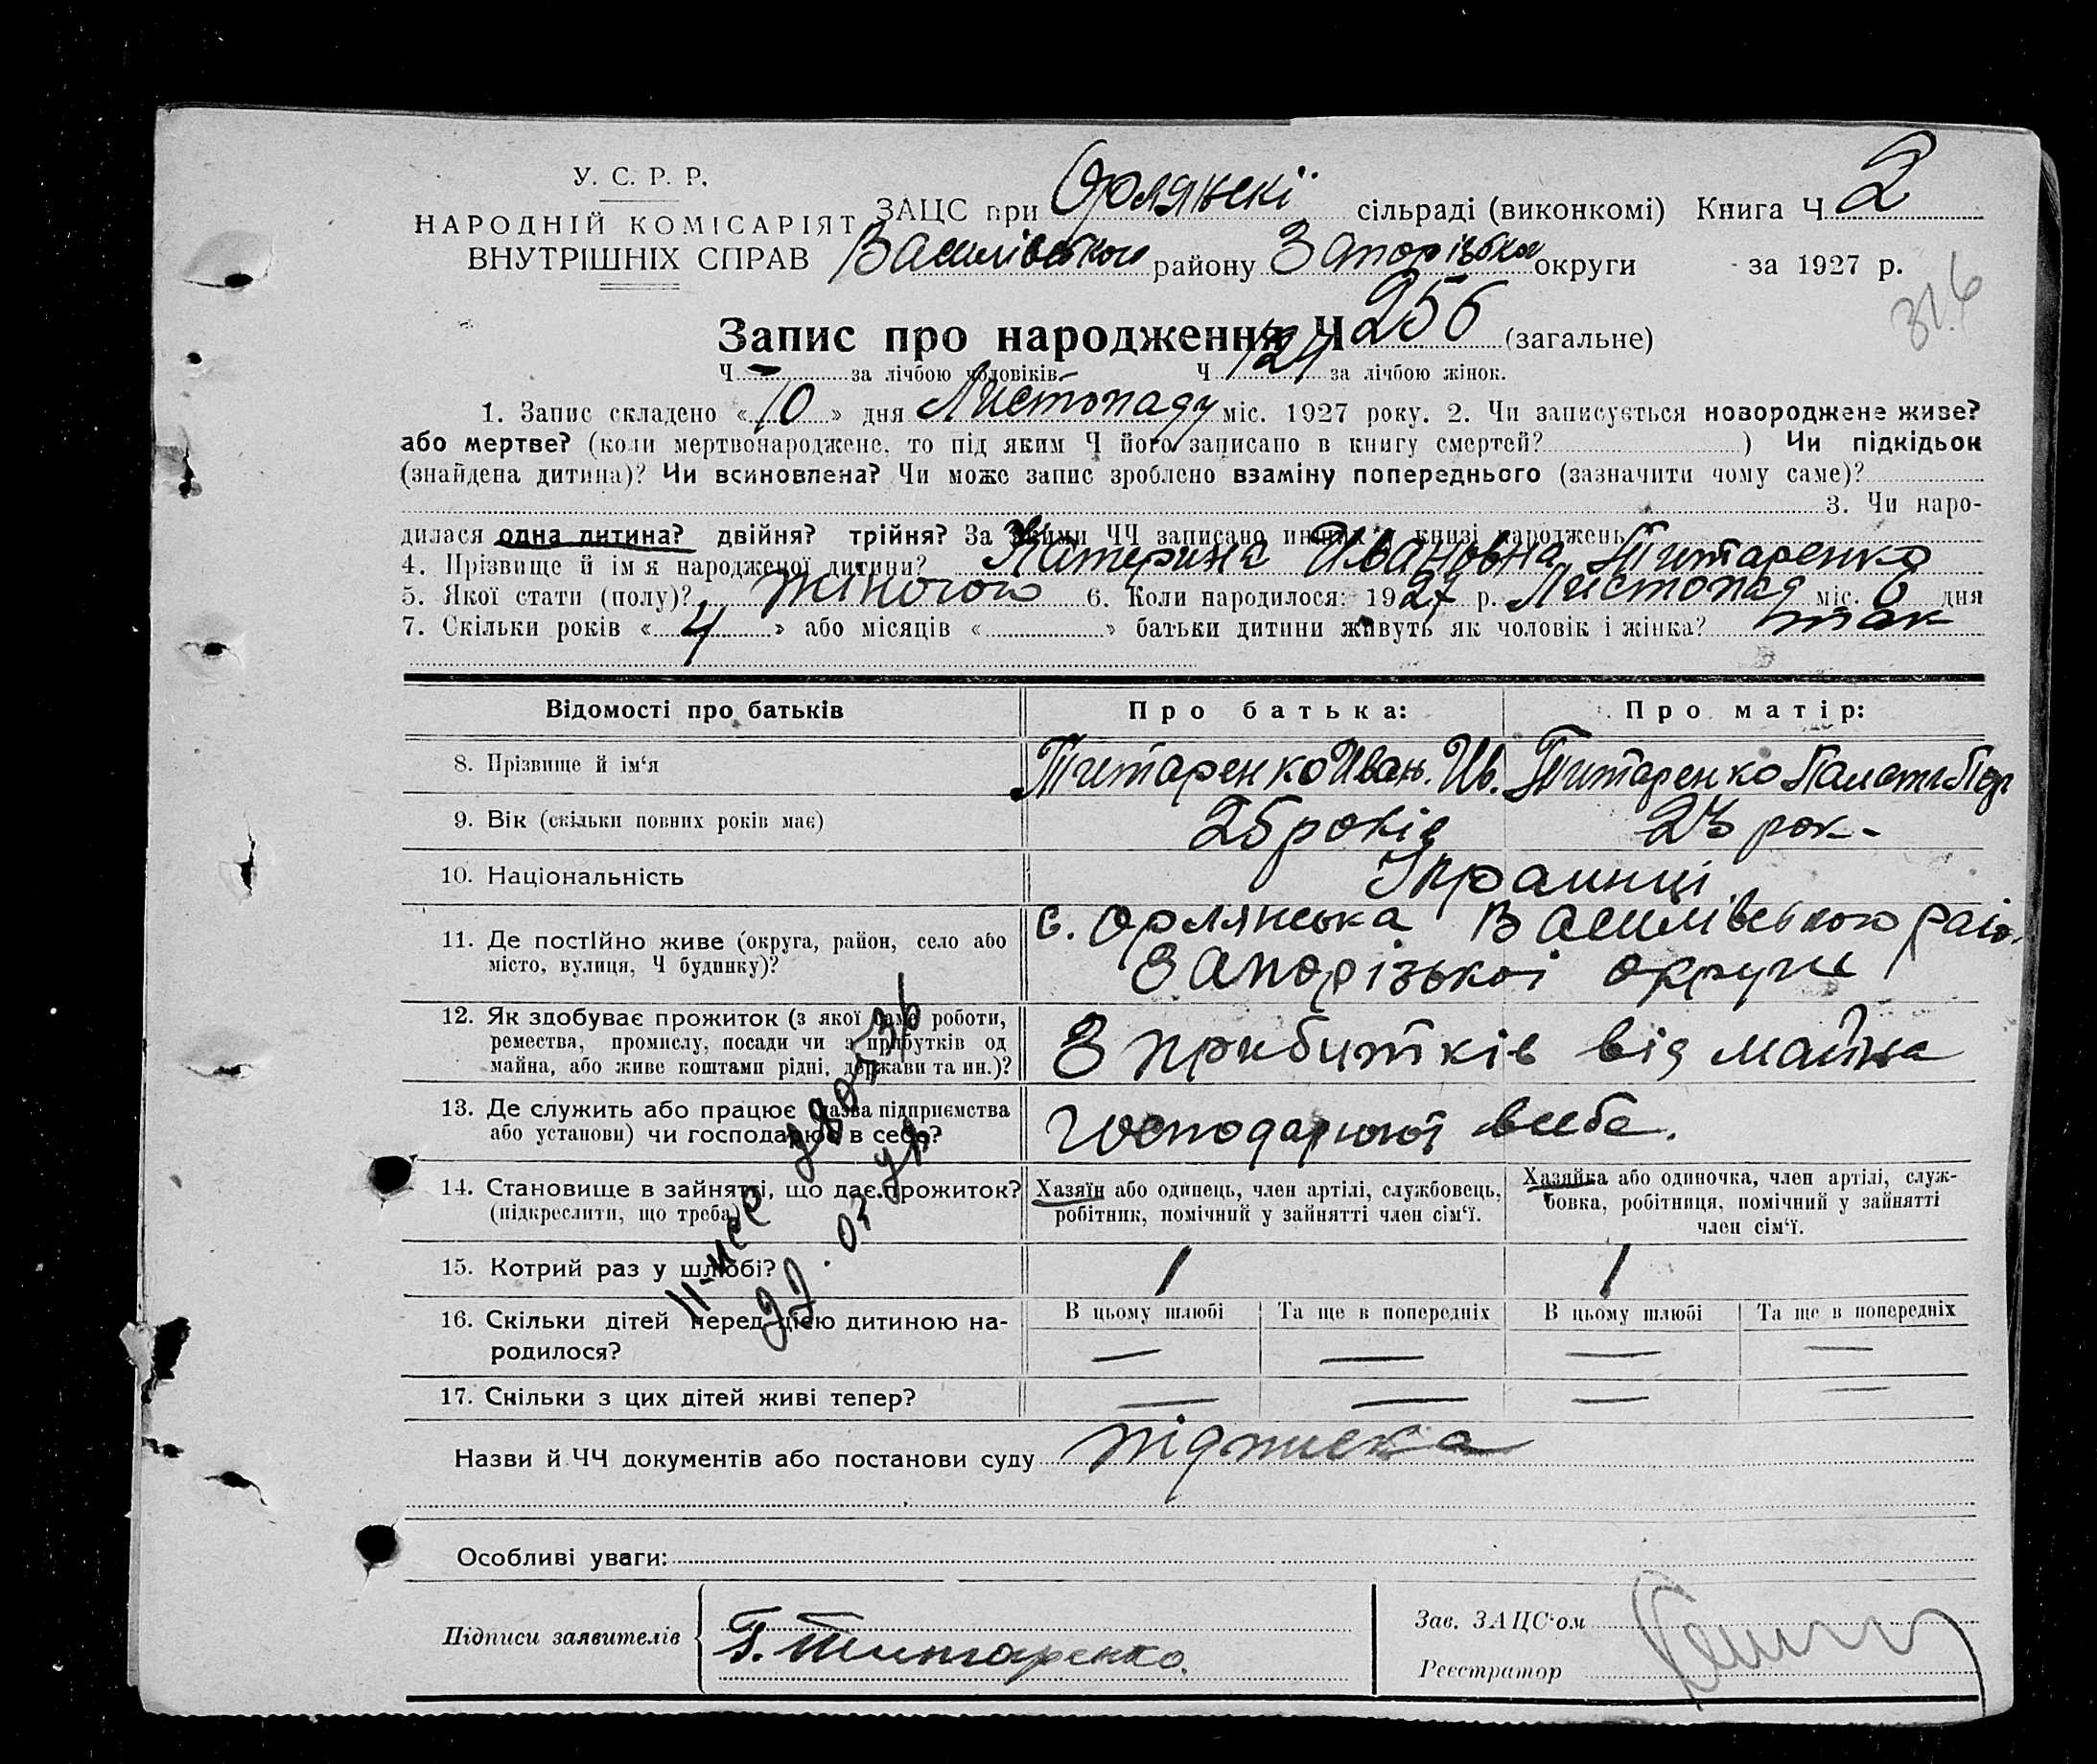 У. С. Р. Р.
НАРОДНІЙ КОМІСАРІЯТ
ВНУТРІШНІХ СПРАВ
ЗАЦС при Орлянскі сільраді (виконкомі) Книга Ч 2
Василівського району Запорізька округи за 1927 р.
316
Запис про народження Ч 256 (загальне)
Ч - за лічбою чоловіків. Ч 124 за лічбою жінок.
1. Запис складено «10» дня Листопаду міс. 1927 року. 2. Чи записується новороджене живе?
або мертве? (коли мертвонароджене, то під яким Ч його записано в книгу смертей? ) Чи підкідьок
(знайдена дитина)? Чи всиновлена? Чи може запис зроблено взаміну попереднього (зазначити чому саме)?
3. Чи наро-
дилася одна дитина? двійня? трійня? За якими ЧЧ записано инших в книзі народжень
4. Прізвище й ім'я народженої дитини? Катерина Ивановна Титаренко
5. Якої стати (полу)? жіночою 6. Коли народилося: 1927 р. Листопад міс. 6 дня
7. Скільки років «4» або місяців « » батьки дитини живуть як чоловік і жінка? так
Відомості про батьків Про батька: Про матір:
8. Прізвище й ім'я Титаренко Иван. Ив. Титаренко
9. Вік (скільки повних років має) 25 років 23 рок-
10. Національність Украинці
11. Де постійно живе (округа, район, село або
місто, вулиця, Ч будинку)?
с. Орлянська Василівського раіо.
Запорізькоі округи
12. Як здобуває прожиток (з якої саме роботи,
ремества, промислу, посади чи з прибутків од
майна, або живе коштами рідні, держави та ин.)?
З прибутків від майна
13. Де служить або працює (назва підприємства
або установи) чи господарює в себе?
Господарюют всебе.
14. Становище в зайнятті, що дає прожиток?
(підкреслити, що треба)
Хазяїн або одинець, член артілі, службовець,
робітник, помічний у зайнятті член сім'ї.
Хазяйка або одиночка, член артілі, служ-
бовка, робітниця, помічний у зайнятті
член сім'ї.
15. Котрий раз у шлюбі? 1 1
16. Скільки дітей перед цією дитиною на-
родилося?
В цьому шлюбі Та ще в попередніх В цьому шлюбі Та ще в попередніх
— — — —
17. Скільки з цих дітей живі тепер? — — — —
Назви й ЧЧ документів або постанови суду підписка
Особливі уваги:
Підписи заявителів
Титаренко.
Зав. ЗАЦС'ом
Реєстратор